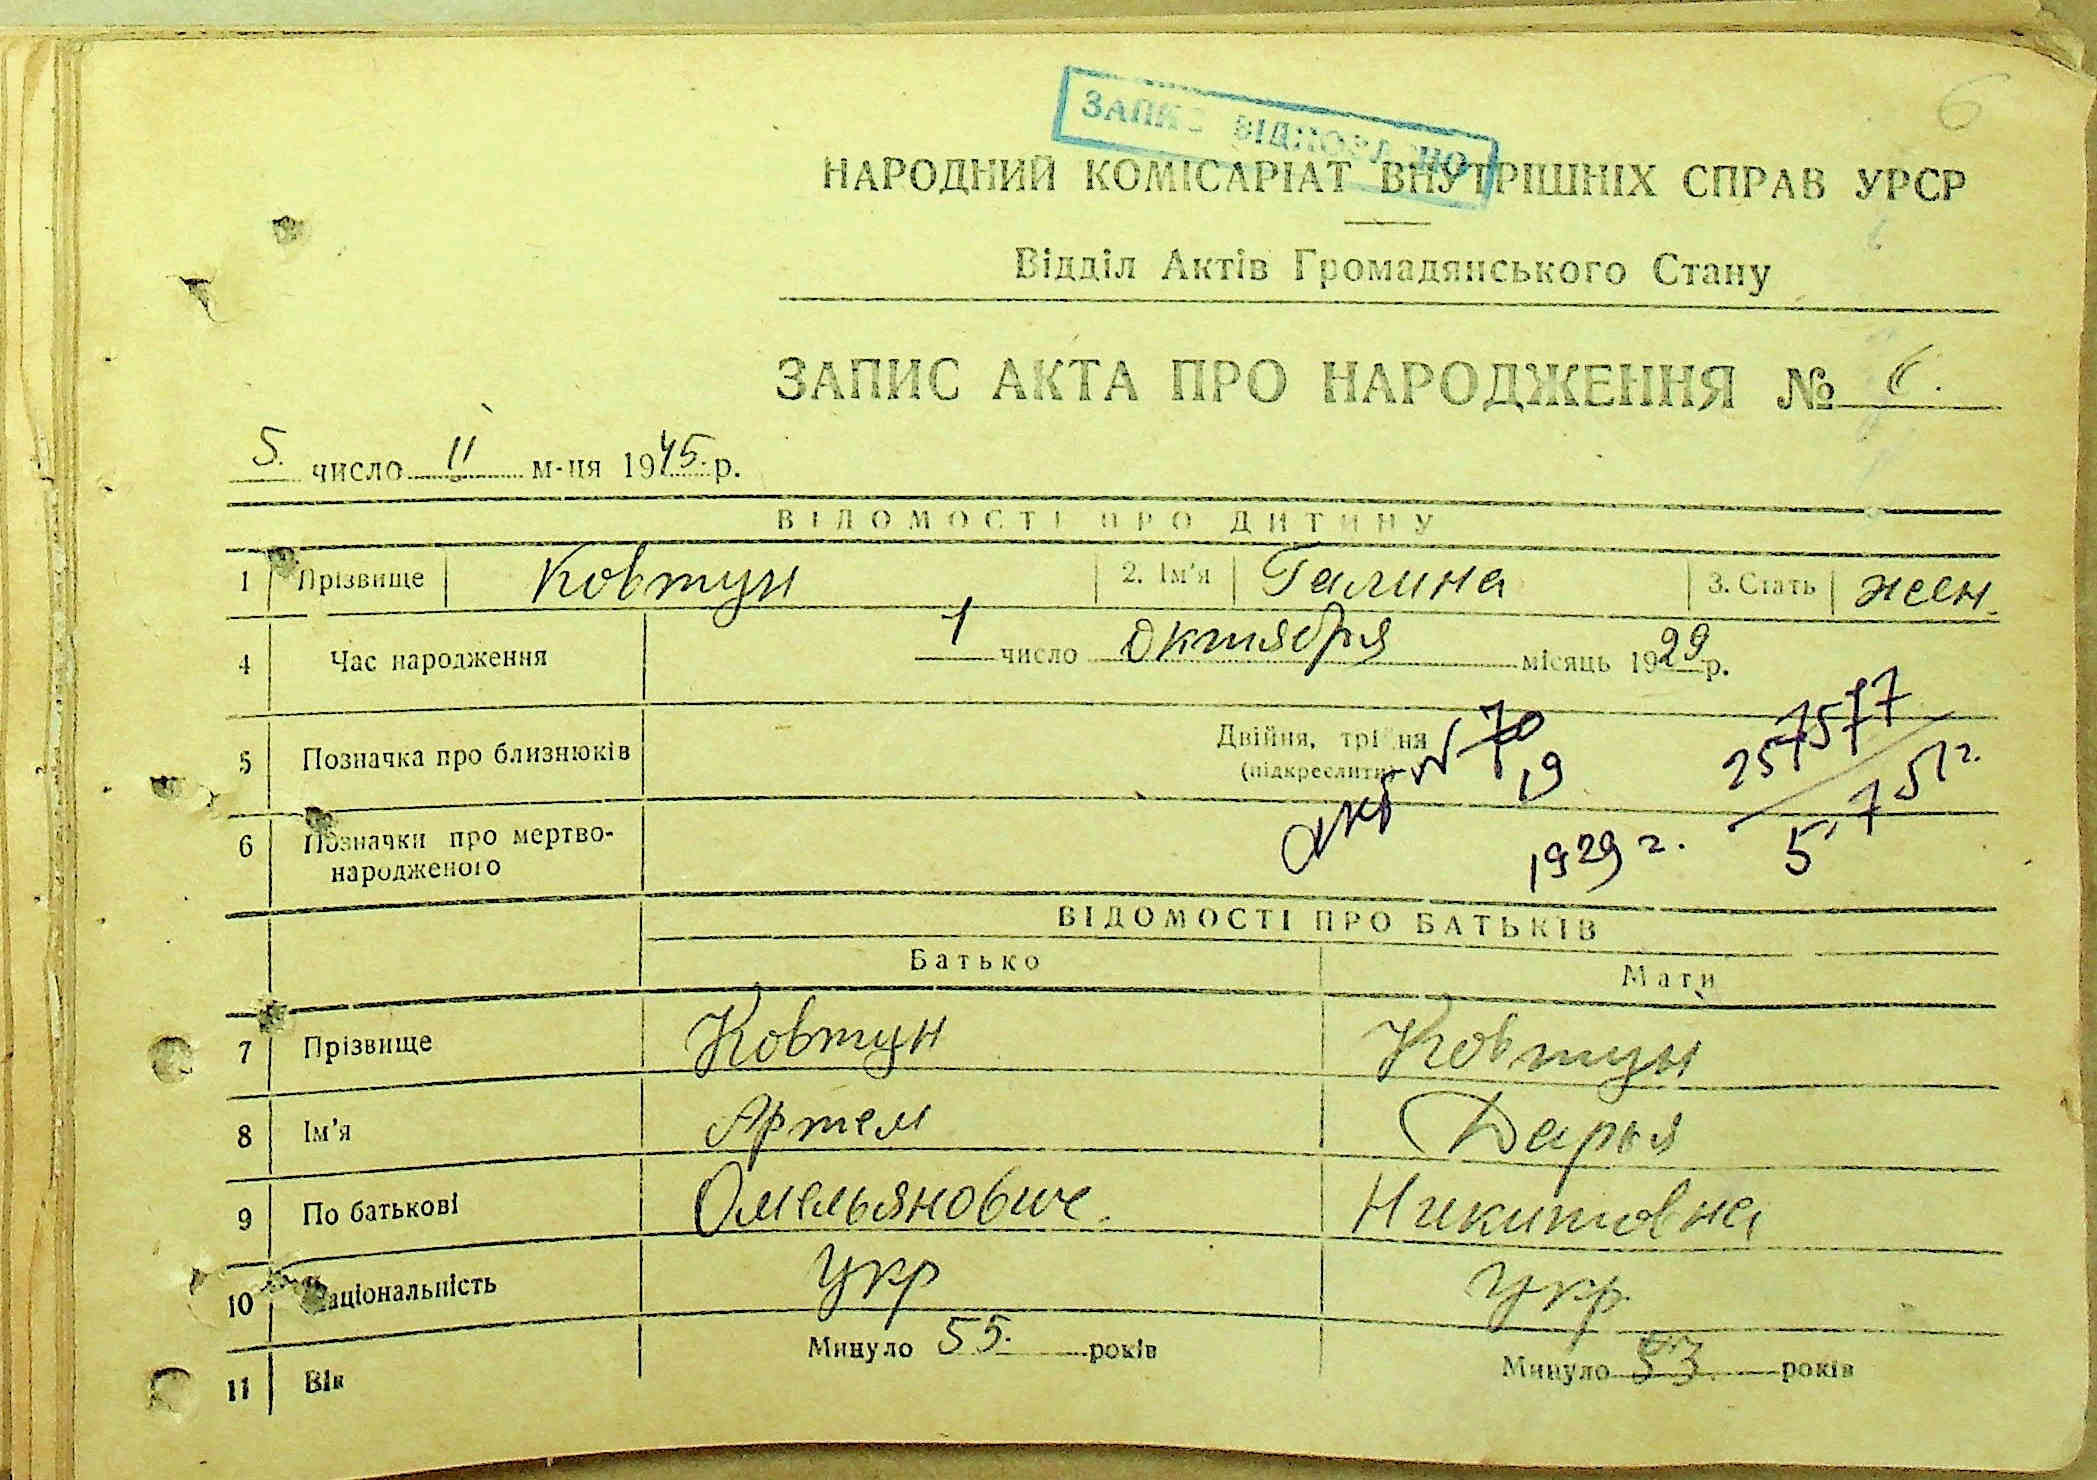 6
ЗАПИС ВІДНОВЛЕНО
НАРОДНИЙ КОМІСАРІАТ ВНУТРІШНІХ СПРАВ УРСР
Відділ Актів Громадянського Стану
ЗАПИС АКТА ПРО НАРОДЖЕННЯ № 6.
5. число II м-ця 1945. р.
ВІДОМОСТІ ПРО ДИТИНУ
1 Прізвище Ковтун 2. Ім'я Галина 3. Стать жен.
4 Час народження 1 число Октября місяць 1929 р.
5 Позначка про близнюків Двійня, трійня
(підкреслити)
акт № 70
19
1929 г.
257577
5, 7 51 г.
6 Позначки про мертво-
народженого
ВІДОМОСТІ ПРО БАТЬКІВ
Батько Мати
7 Прізвище Ковтун Ковтун
8 Ім'я Артем Дарья
9 По батькові Омельянович Никитовна
10 Національність Укр Укр
11 Вік Минуло 55. років Минуло 53. років